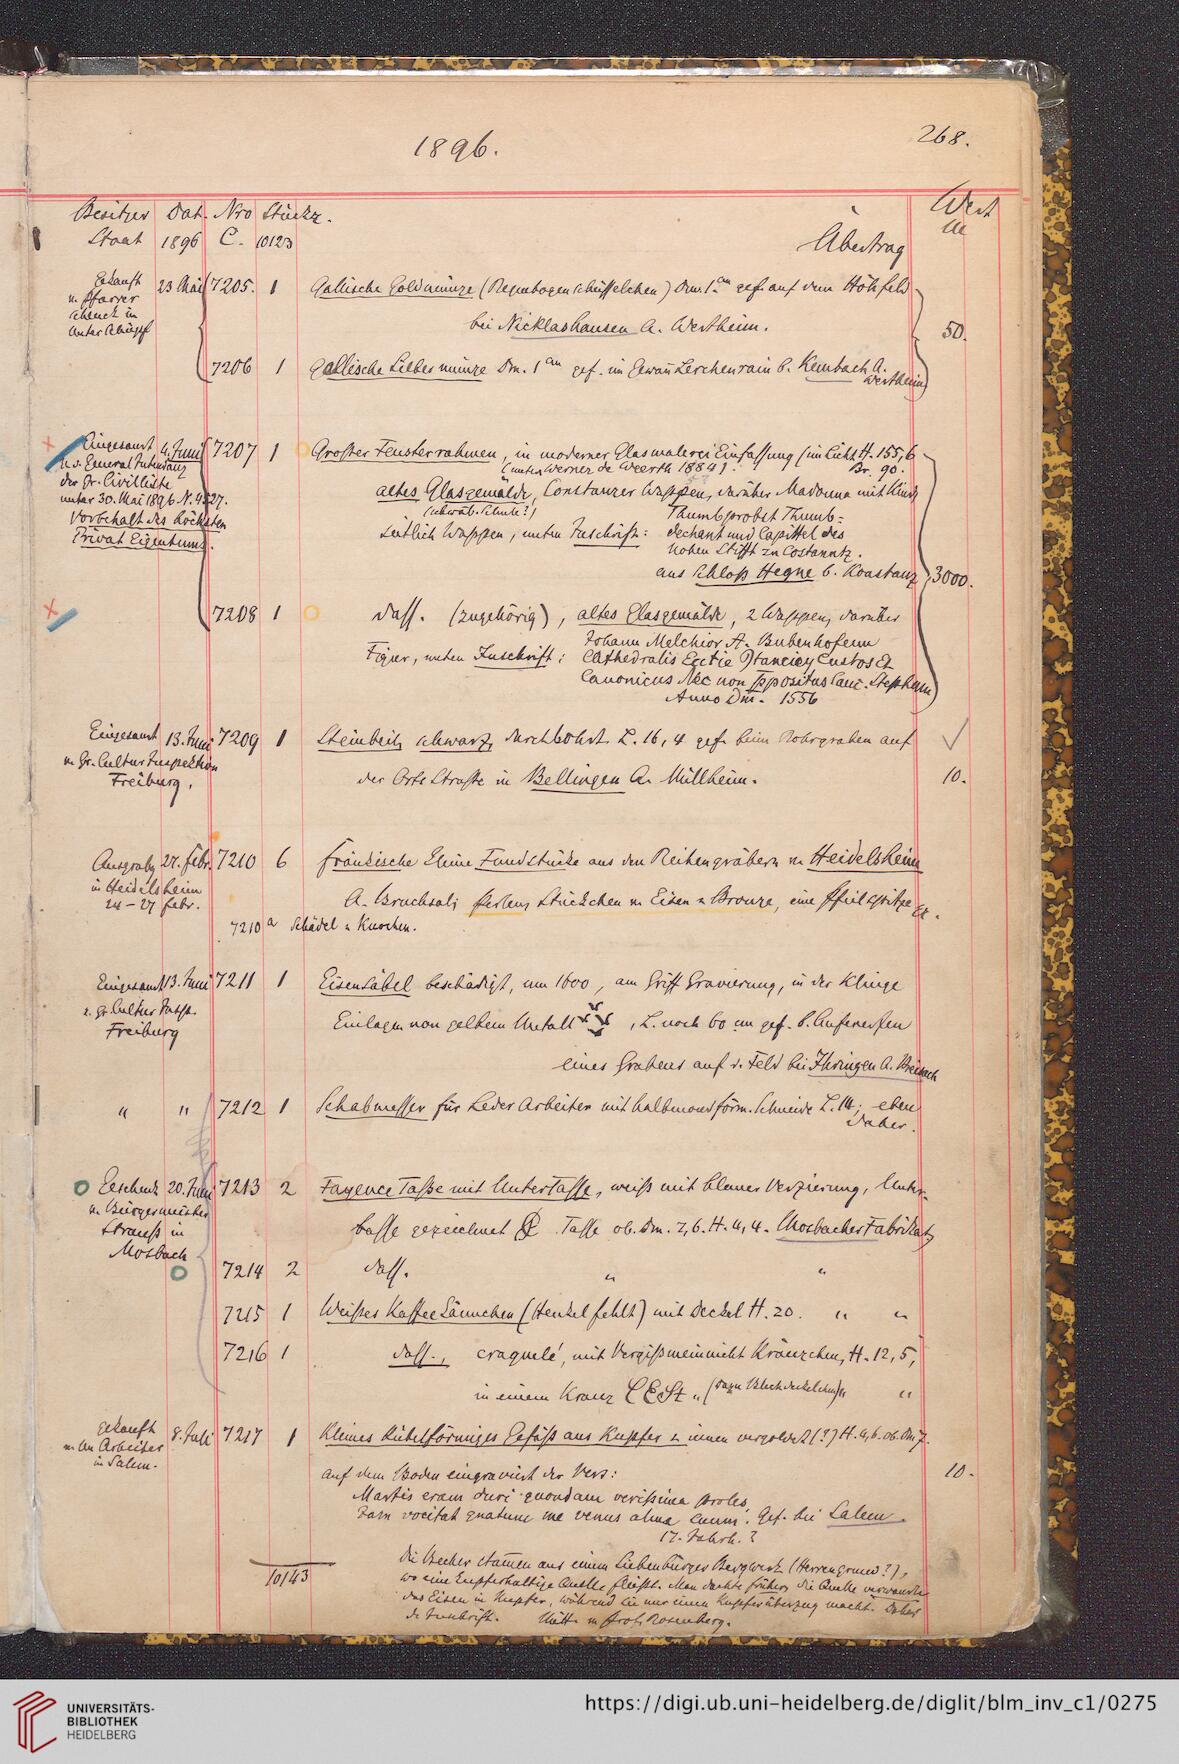 1896.
268.
Besitzer Dat. Nro Stückz. Wert
Staat 1896 C. 10123 Übertrag M
Gekauft 23 Mai 7205. 1 Gallische Goldmünze (Regenbogenschüsselchen) Dm. 1 cm gef. auf dem Höhfeld
v. Pfarrer
Schenck in
Unterschüpf
bei Nicklashausen A. Wertheim.
50.
7206 1 Gallische Silbermünze Dm. 1 cm gef. im Gewann Lerchenrain b. Kembach A.
Wertheim
Eingesamt 4. Juni 7207 1 Großer Fensterrahmen, in moderner Glasmalerei Einfassung (im Licht H. 155,6
v. d. General Intendanz (unten Werner de Weerth 1884). Br. 90.
der Gr. Civilliste
unter 30. Mai 1896 N. 4527.
Vorbehalt des höchsten
Privat Eigentums.
altes Glasgemälde, Constanzer Wappen, darüber Madonna mit Kind
(schwäb. Schule?) Thumbprobst Thumb-
seitlich Wappen, unten Inschrift: dechant und Capittel des
hohen Stifft zu Costanntz.
aus Schloß Hegne b. Konstanz 3000.
7208 1 dass. (zugehörig), altes Glasgemälde, 2 Wappen, darüber
Johann Melchior A. Bubenhofenn
Figur, unten Inschrift: Cathedralis Ecctie Custos Et
Canonicus Nec non ppositus Sanc. Stephani
Anno Dni. 1556
Eingesamt 13. Juni 7209 1 Steinbeil, schwarz, durchbohrt L. 16,4 gef. beim Rohrgraben auf
v. Gr. Cultur Inspektion
Freiburg.
der Orts Straße in Bellingen A. Müllheim.
10.
Ausgrabg 27. Febr. 7210 6 fränkische kleine Fundstücke aus den Reihengräbern v. Heidelsheim
in Heidelsheim
24-27 Febr.
A. Bruchsal; Perlen, Stückchen v. Eisen u. Bronze, eine Pfeilspitze etc.
7210 a Schädel u. Knochen.
Eingesamt 13. Juni 7211 1 Eisensäbel beschädigt, um 1600, am Griff Gravierung, in der Klinge
v. gr. Cultur Insp.
Freiburg
Einlagen von gelbem Metall, L. noch 60 cm gef. b. Aufwerfen
eines Grabens auf d. Feld bei Ihringen A. Breisach
" " 7212 1 Schabmesser für Leder Arbeiten mit halbmondförm. Schneide L. 14; eben
daher.
Geschenk 20. Juni 7213 2 Fayence Tasse mit Untertasse, weiß mit blauer Verzierung, Unter-
v. Bürgermeister
Strauß in
Mosbach
tasse gezeichnet Tasse ob. Dm. 7,6. H. 4,4. Mosbacher Fabrikat,
7214 2 dass. " "
7215 1 Weißes Kaffee Kännchen (Henkel fehlt) mit Deckel H. 20. " "
7216 1 dass., craquelé, mit Vergißmeinnicht Kränzchen, H. 12,5,
in einem Kranz C E St " (dazu Blechdeckelchen) " "
Gekauft 8. Juli 7217 1 Kleines kübelförmiges Gefäß aus Kupfer u. innen vergoldet (?) H. 4,6. ob. Dm 7.
v. Arbeiter
in Salem.
auf dem Boden eingraviert der Vers: 10.
Martis eram duri quondam verissima proles,
Jam vocitat gnatum me venus alma suum. Gef. bei Salem.
17. Jahrh.?
Die Becher stammen aus einem Siebenbürger Bergwerk (Herrengrund?),
wo eine kupferhaltige Quelle fließt. Man dachte früher, die Quelle verwandle
10143
das Eisen in Kupfer, während sie nur einen Kupferüberzug macht. Daher
die Inschrift. Mitt. v. Prof. Rosenberg.
UNIVERSITÄTS-
BIBLIOTHEK
HEIDELBERG
https://digi.ub.uni-heidelberg.de/diglit/blm_inv_c1/0275